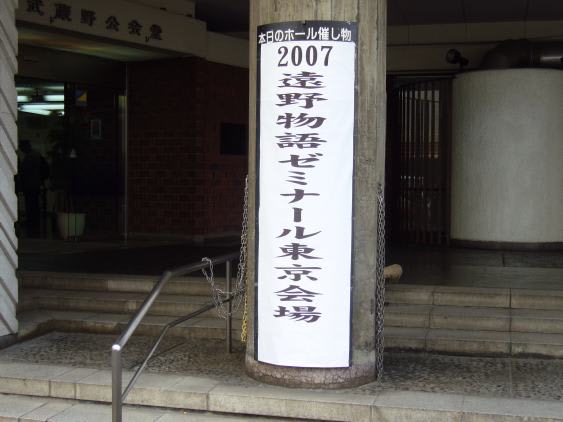 武蔵野公会堂
本日のホール催し物
2007
遠野物語ゼミナール東京会場